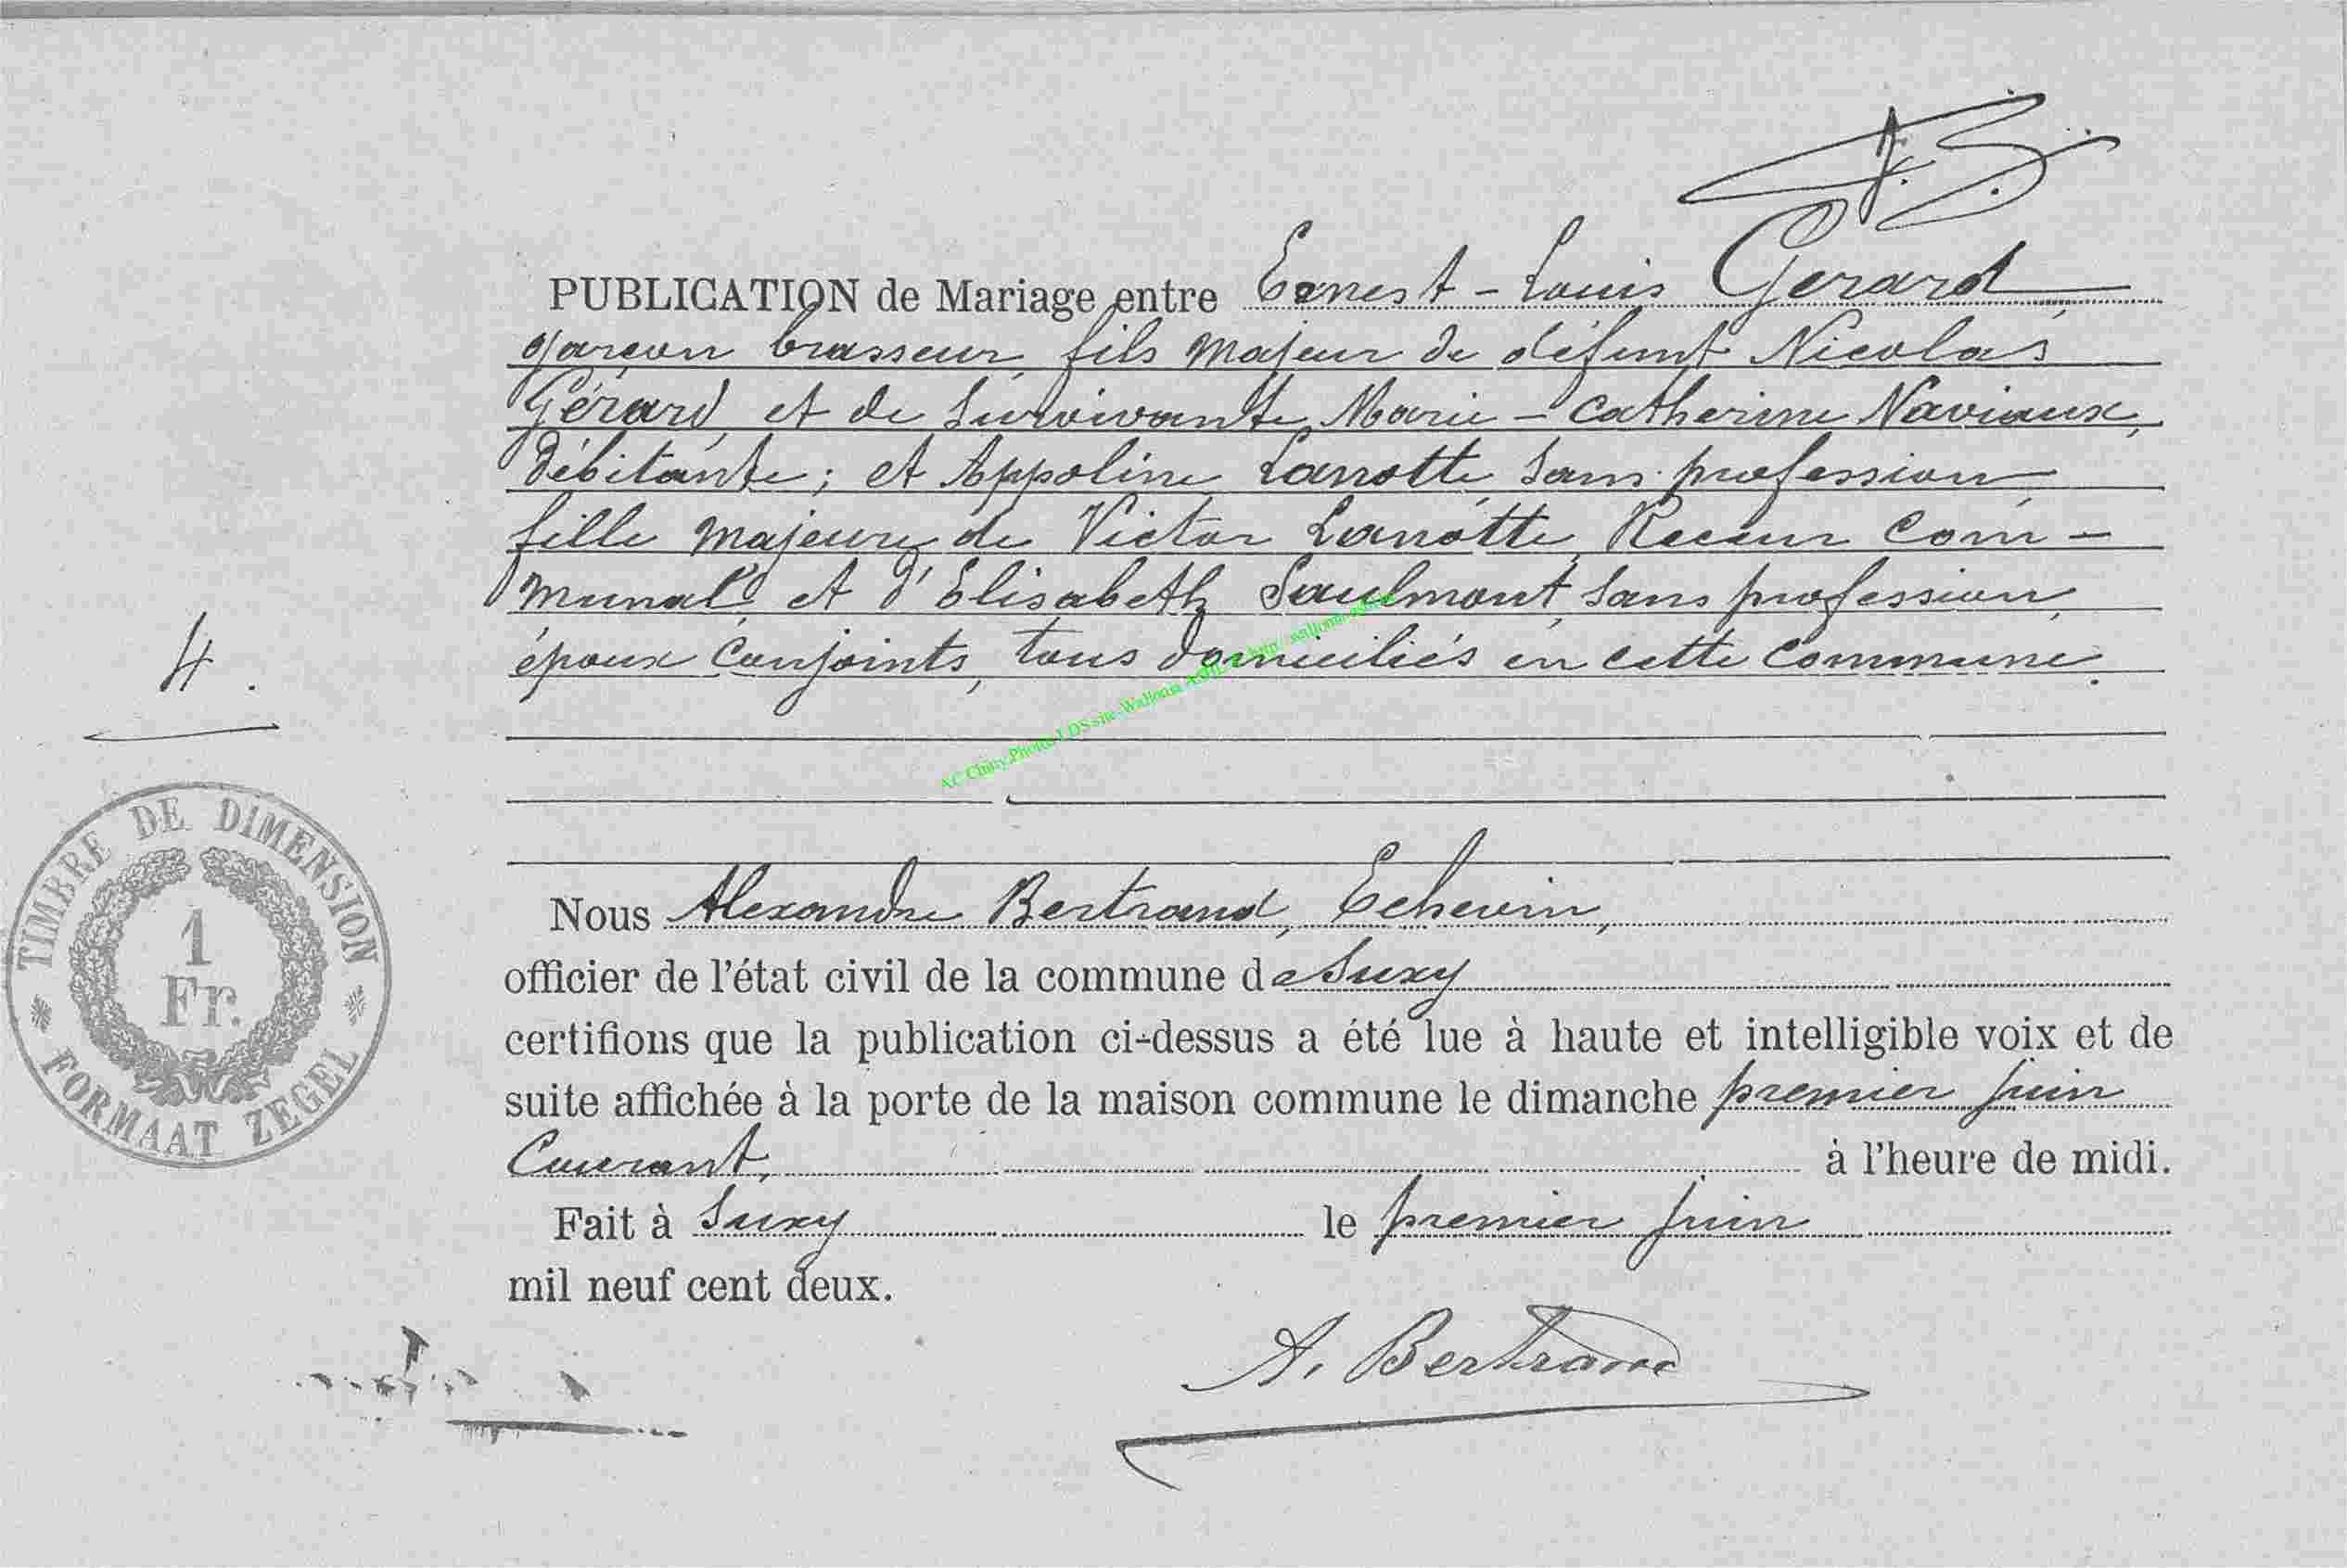 PUBLICATION de Mariage entre Ernest - Louis Gerard,
garçon brasseur, fils majeur de défunt Nicolas
Gérard, et de survivante Marie - Catherine Naviaux,
débitante ; et Appoline Lanotte, sans profession,
fille majeure de Victor Lanotte, Receveur Com -
munal, et d'Elisabeth Saulmont, sans profession,
4.
époux conjoints, tous domiciliés en cette commune.
TIMBRE DE DIMENSION
1
Fr.
FORMAAT ZEGEL
Nous Alexandre Bertrand, Echevin,
officier de l'état civil de la commune de Suxy
certifions que la publication ci-dessus a été lue à haute et intelligible voix et de
suite affichée à la porte de la maison commune le dimanche premier juin
Courant, à l'heure de midi.
Fait à Suxy le premier juin
mil neuf cent deux.
A. Bertrand